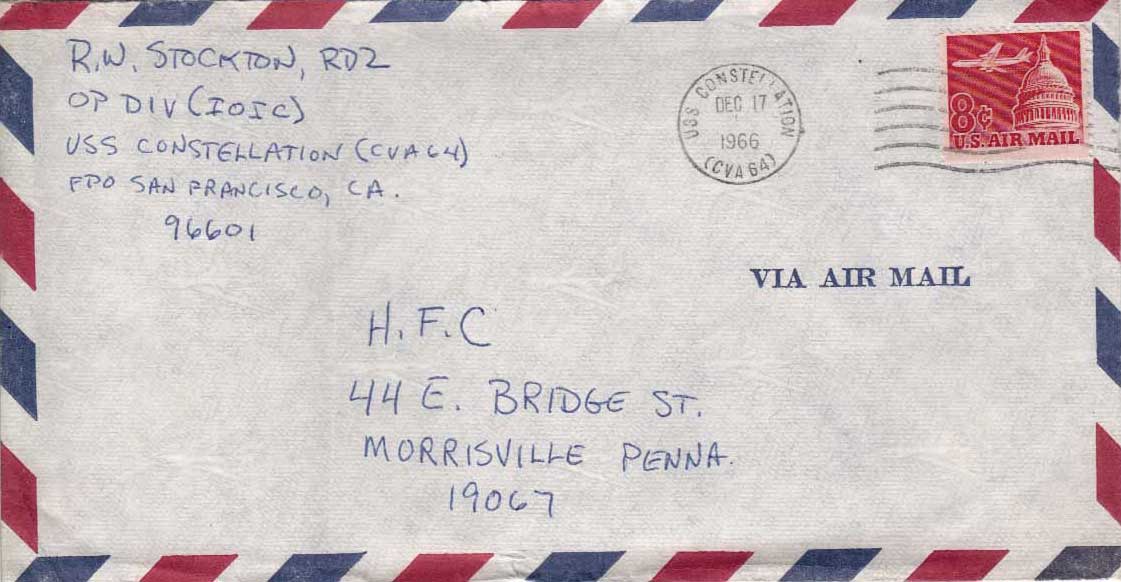 R.W. STOCKTON, RD2
OP DIV (IOIC)
USS CONSTELLATION (CVA64)
FPO SAN FRANCISCO, CA.
96601
USS CONSTELLATION
DEC 17
1966
(CVA 64)
8¢
U.S. AIR MAIL
VIA AIR MAIL
H.F.C
44 E. BRIDGE ST.
MORRISVILLE PENNA.
19067